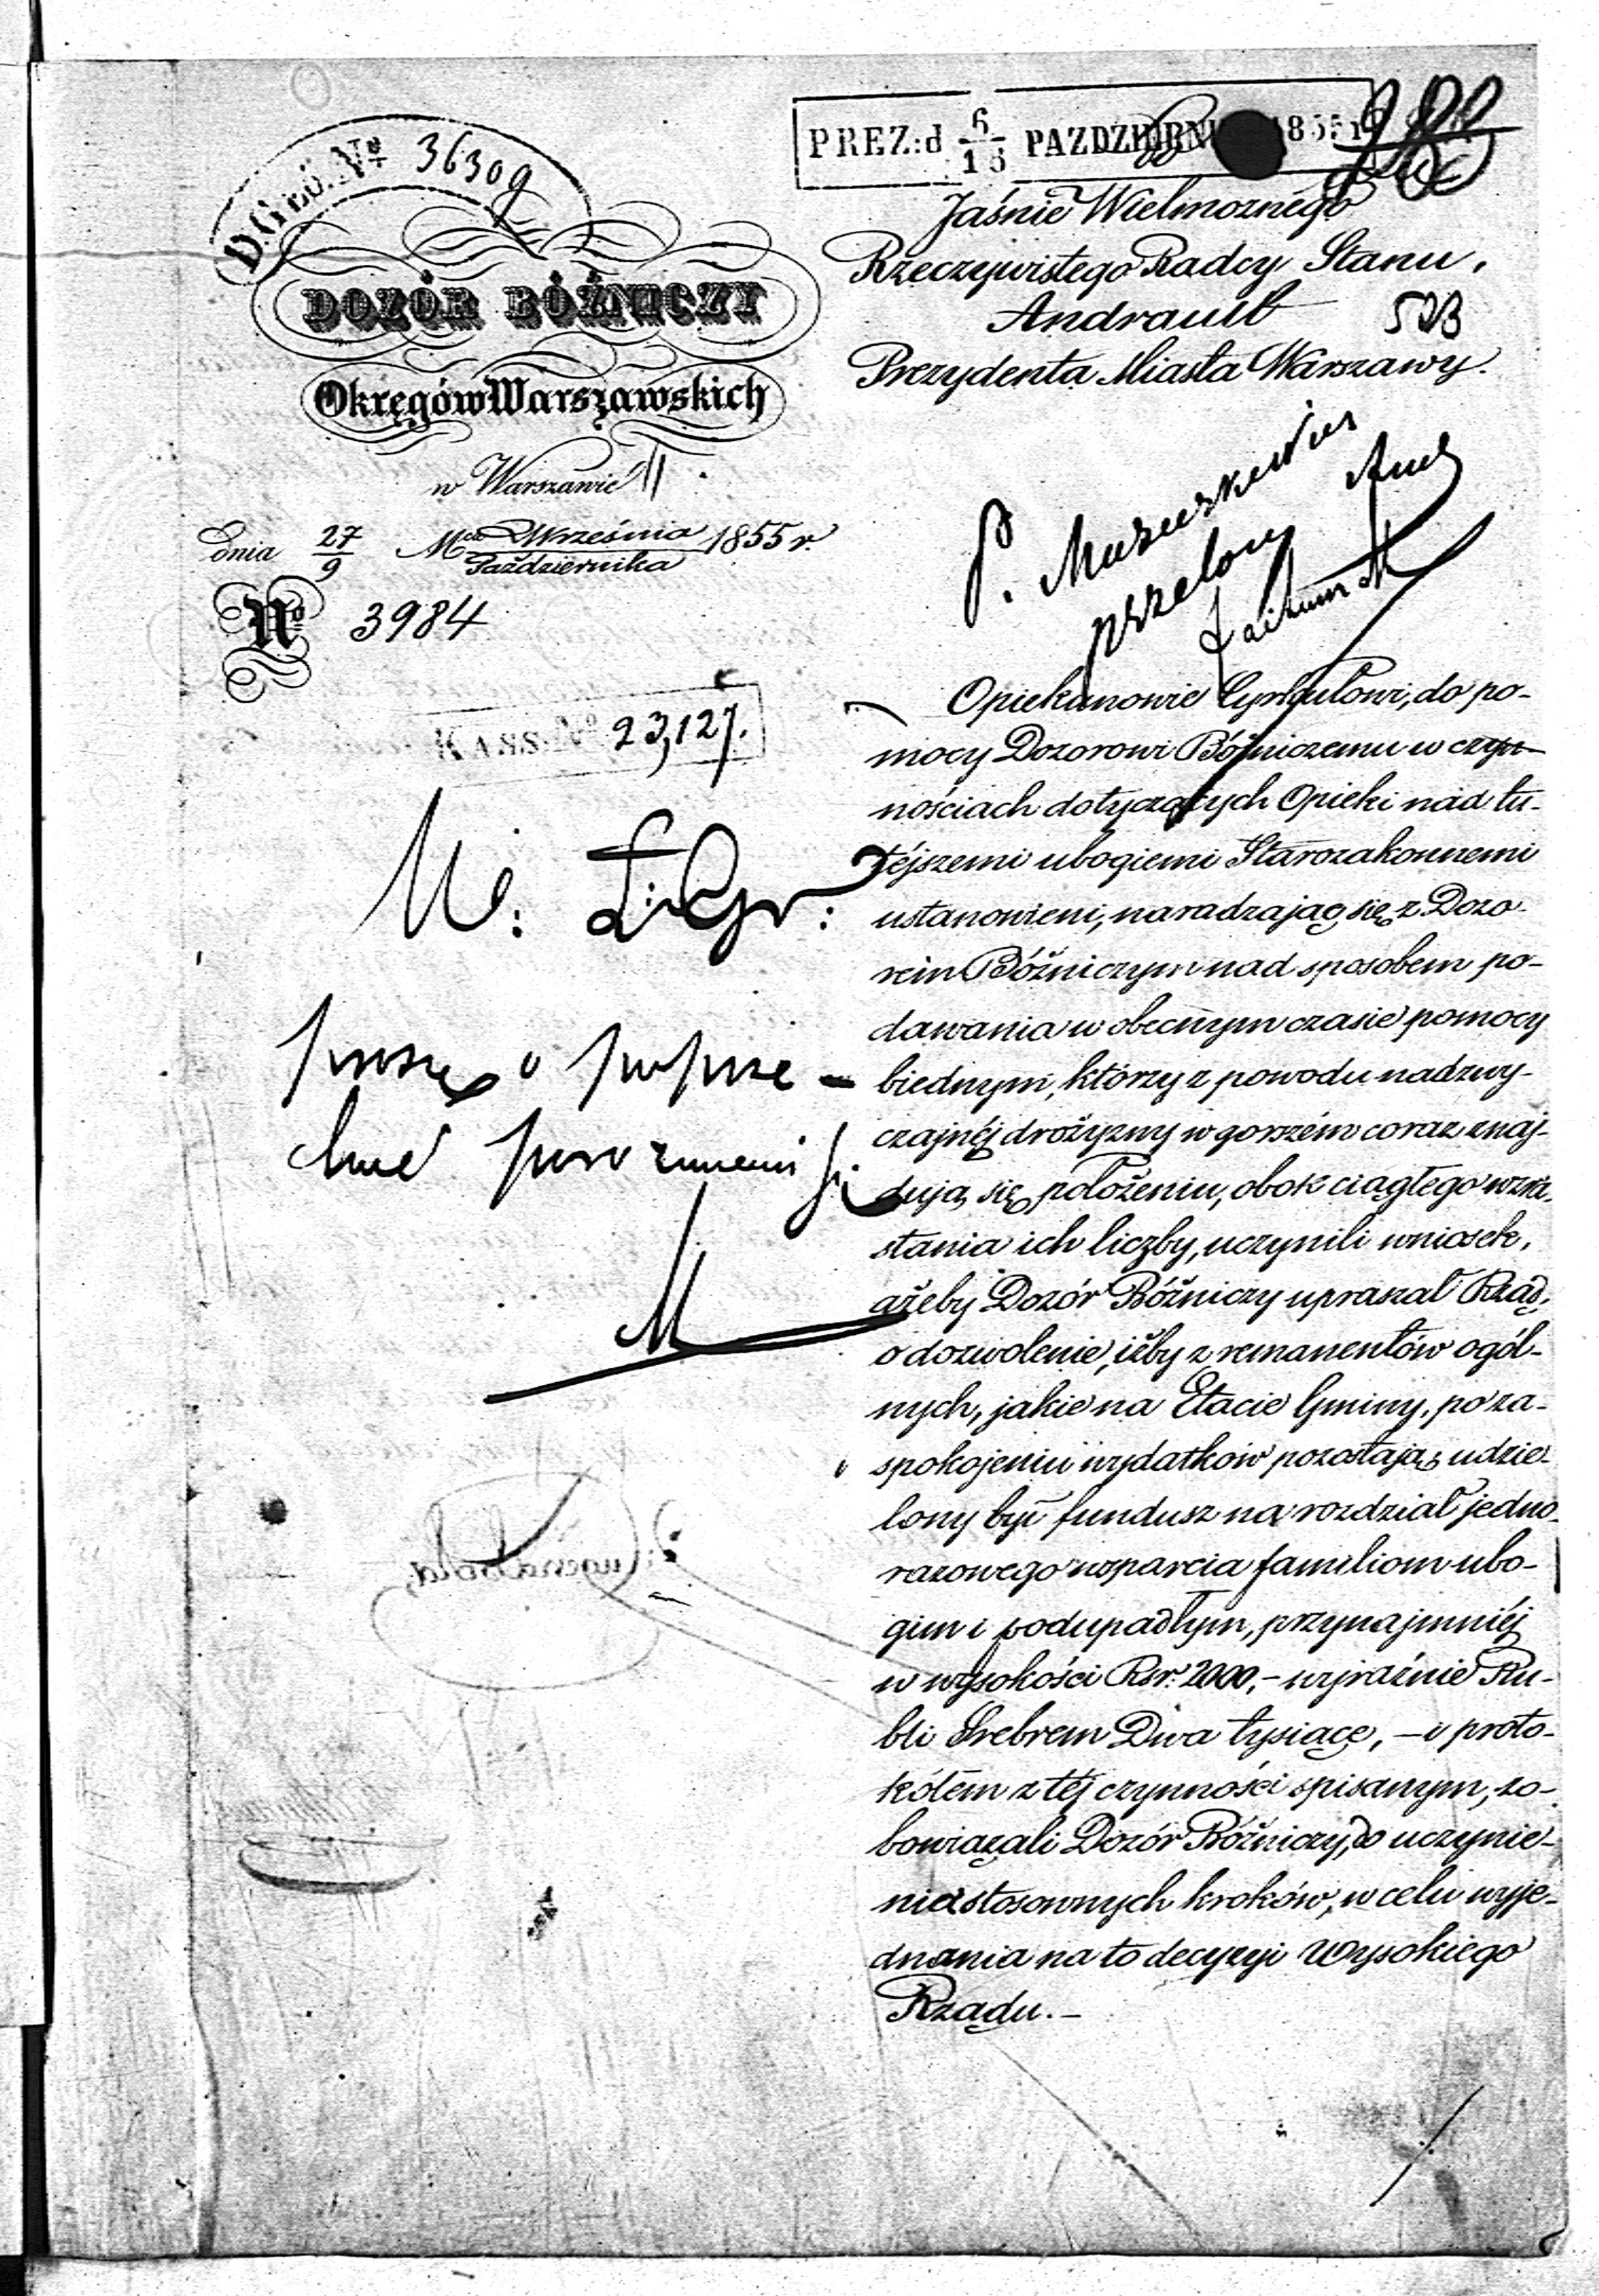 D. GŁÓ. Nº 36309
PREZ: d 6/18 PAZDZIERNI 1855 r
DOZÓR BÓŻNICZY
Okręgów Warszawskich
w Warszawie
dnia 27/9 Mca Września/Października 1855 r.
Nº 3984
KASS. Nº 23,127.
Jaśnie Wielmożnego
Rzeczywistego Radcy Stanu,
Andrault 523
Prezydenta Miasta Warszawy.
P.
Opiekunowie Cyrkułowi, do po-
mocy Dozorowi Bóżniczemu w czyn-
nościach dotyczących Opieki nad tu-
téjszemi ubogiemi Starozakonnemi
ustanowieni, naradzając się z Dozo-
rem Bóżniczym nad sposobem po-
dawania w obecnym czasie pomocy
biednym, którzy z powodu nadzwy-
czajnéj drożyzny w gorszém coraz znaj-
dują się położeniu, obok ciągłego wzra-
stania ich liczby, uczynili wniosek,
ażeby Dozór Bóżniczy upraszał Rząd,
o dozwolenie, iżby z remanentów ogól-
nych, jakie na Etacie Gminy, po za-
spokojeniu wydatków pozostają, udzie-
lony był fundusz na rozdział jedno-
razowego wsparcia familiom ubo-
gim i podupadłym, przynajmniéj
w wysokości Rsr. 2000,- wyraźnie Ru-
bli Srebrem Dwa tysiące, - i proto-
kółem z téj czynności spisanym, zo-
bowiązali Dozór Bóżniczy, do uczynie-
nia stosownych kroków, w celu wyje-
dnania na to decyzyi Wysokiego
Rządu. -
proszę o poprze-